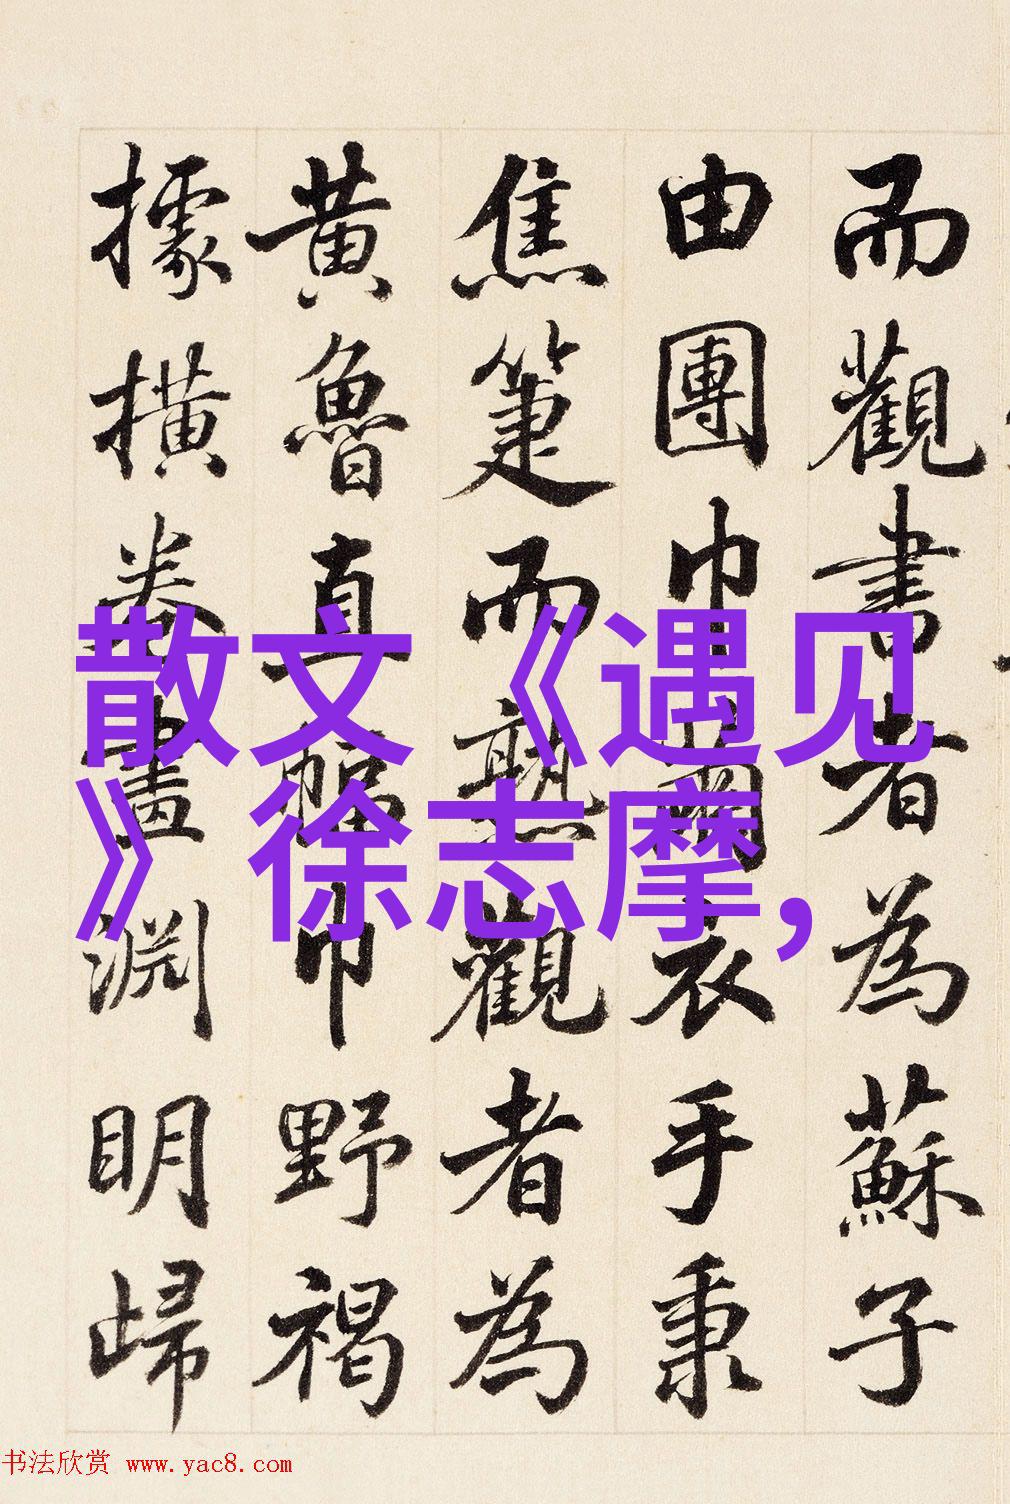 而觀書者為蘇子
由團巾繭衣手秉
焦箑而熟觀者為
黃魯直幅巾野褐
據橫卷畫淵明歸
散文《遇见
》徐志摩,
书法欣赏 www.yac8.com